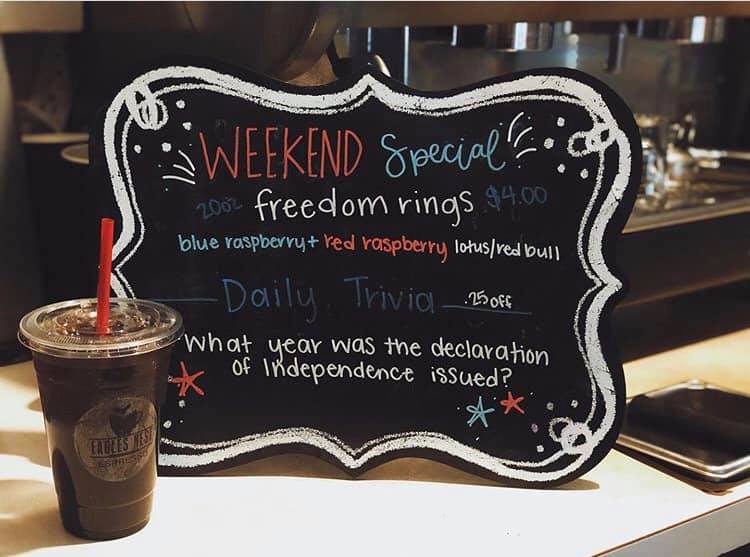 WEEKEND Special
20oz freedom rings $4.00
blue raspberry + red raspberry lotus/red bull
Daily Trivia .25 off
What year was the declaration
of Independence issued?
EAGLES NEST
ESPRESSO